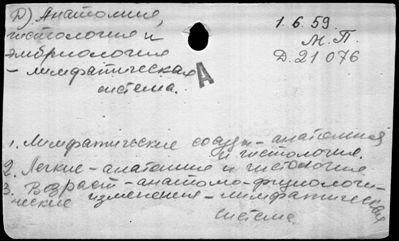 Д) Анатомия,
гистология и
эмбриология
- лимфатическая
система.
1.6.59.
М.П.
Д.21076
А
1. Лимфатические сосуды - анатомия
и гистология.
2. Легкие - анатомия и гистология
3. Возраст - анатомо-физиологи-
ческие изменения - лимфатическая
система